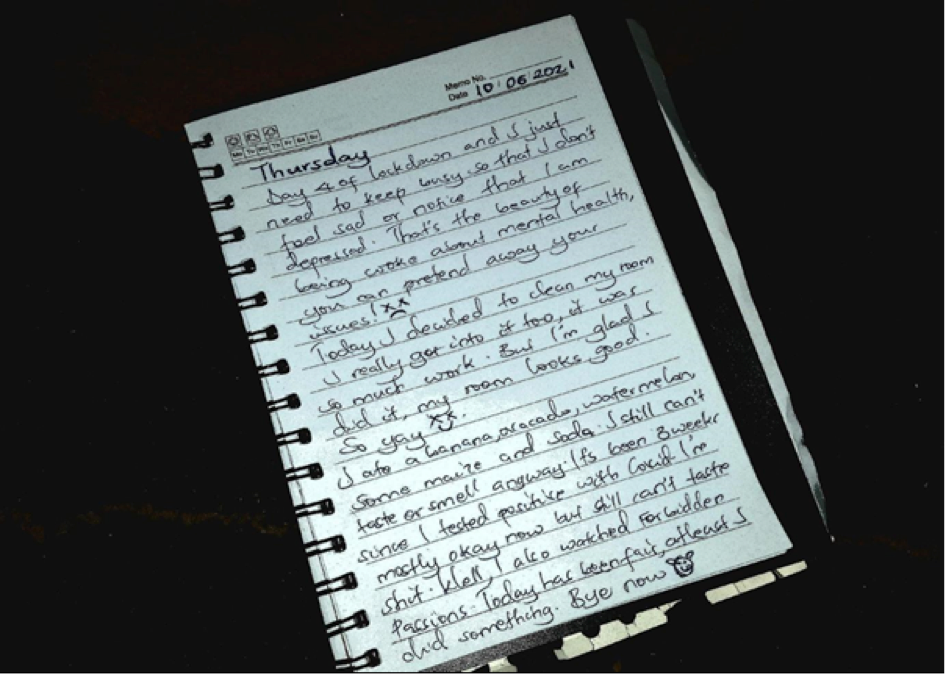 Memo No.
Date 10 06 2021
Mo Tu We Th Fr Sa Su
Thursday
Day 4 of lockdown and I just
need to keep busy so that I don't
feel sad or notice that I am
depressed. That's the beauty of
being woke about mental health,
you can pretend away your
issues!
Today I decided to clean my room
I really got into it too, it was
so much work. But I'm glad I
did it, my room looks good.
So yay
I ate a banana, avacado, watermelon,
some maize and soda. I still can't
taste or smell anyway. It's been 3 weeks
since I tested positive with Covid I'm
mostly okay now but still can't taste
shit. Well, I also watched Forbidden
Passions. Today has been fair, atleast I
did something. Bye now